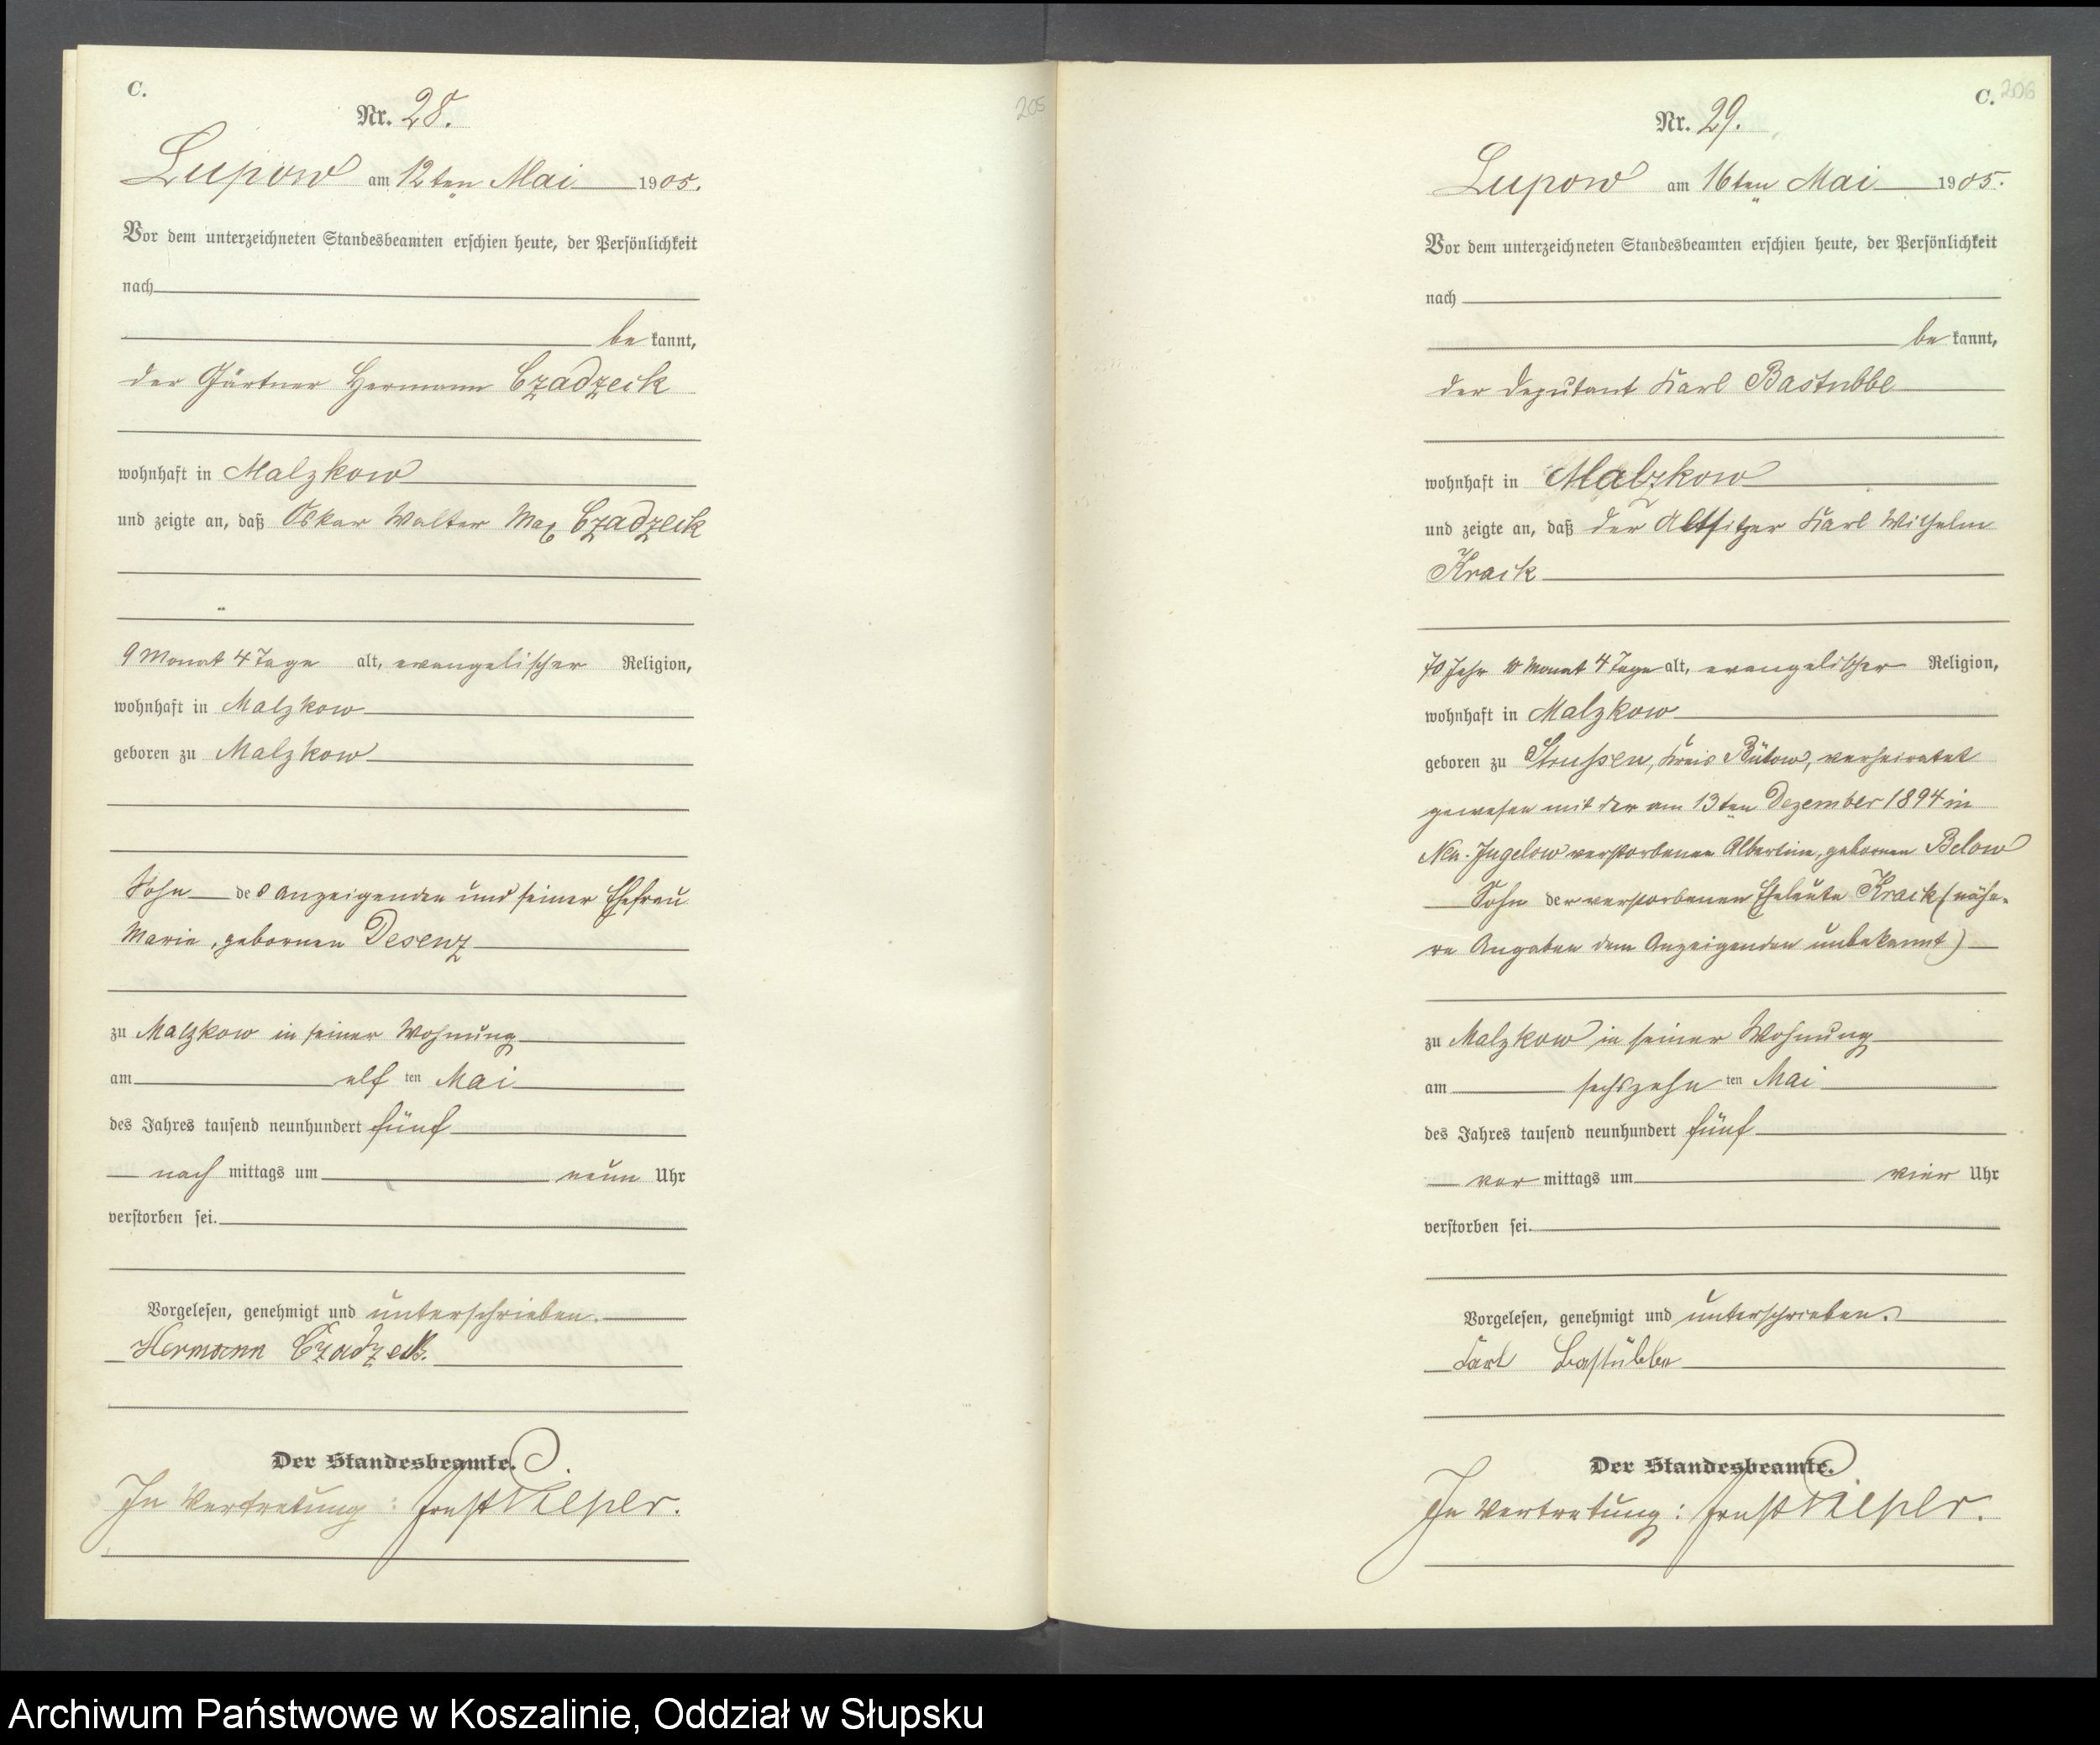 C.
Nr. 28.
205
Lupow am 12ten Mai 1905.
Vor dem unterzeichneten Standesbeamten erschien heute, der Persönlichkeit
nach
be kannt,
der Gärtner Hermann Czadzeck
wohnhaft in Malzkow
und zeigte an, daß Oskar Walter Max Czadzeck
9 Monat 4 Tage alt, evangelischer Religion,
wohnhaft in Malzkow
geboren zu Malzkow
Sohn des Anzeigenden und seiner Ehefrau
Marie, gebornen Desenz
zu Malzkow in seiner Wohnung
am elf ten Mai
des Jahres tausend neunhundert fünf
nach mittags um neun Uhr
verstorben sei.
Vorgelesen, genehmigt und unterschrieben.
Hermann Czadzeck.
Der Standesbeamte.
In Vertretung: Ernst Kieper.
C. 206
Nr. 29.
Lupow am 16ten Mai 1905.
Vor dem unterzeichneten Standesbeamten erschien heute, der Persönlichkeit
nach
be kannt,
der Deputant Karl Bastubbe
wohnhaft in Malzkow
und zeigte an, daß der Altsitzer Karl Wilhelm
Krack
70 Jahr 10 Monat 4 Tage alt, evangelischer Religion,
wohnhaft in Malzkow
geboren zu Strussen, Kreis Bütow, verheiratet
gewesen mit der am 13ten Dezember 1894 in
Neu-Jugelow verstorbenen Albertine, gebornen Below
Sohn der verstorbenen Eheleute Krack (nähe-
re Angaben dem Anzeigenden unbekannt)
zu Malzkow in seiner Wohnung
am sechszehn ten Mai
des Jahres tausend neunhundert fünf
vor mittags um vier Uhr
verstorben sei.
Vorgelesen, genehmigt und unterschrieben.
Karl Bastubbe
Der Standesbeamte.
In Vertretung: Ernst Kieper.
Archiwum Państwowe w Koszalinie, Oddział w Słupsku